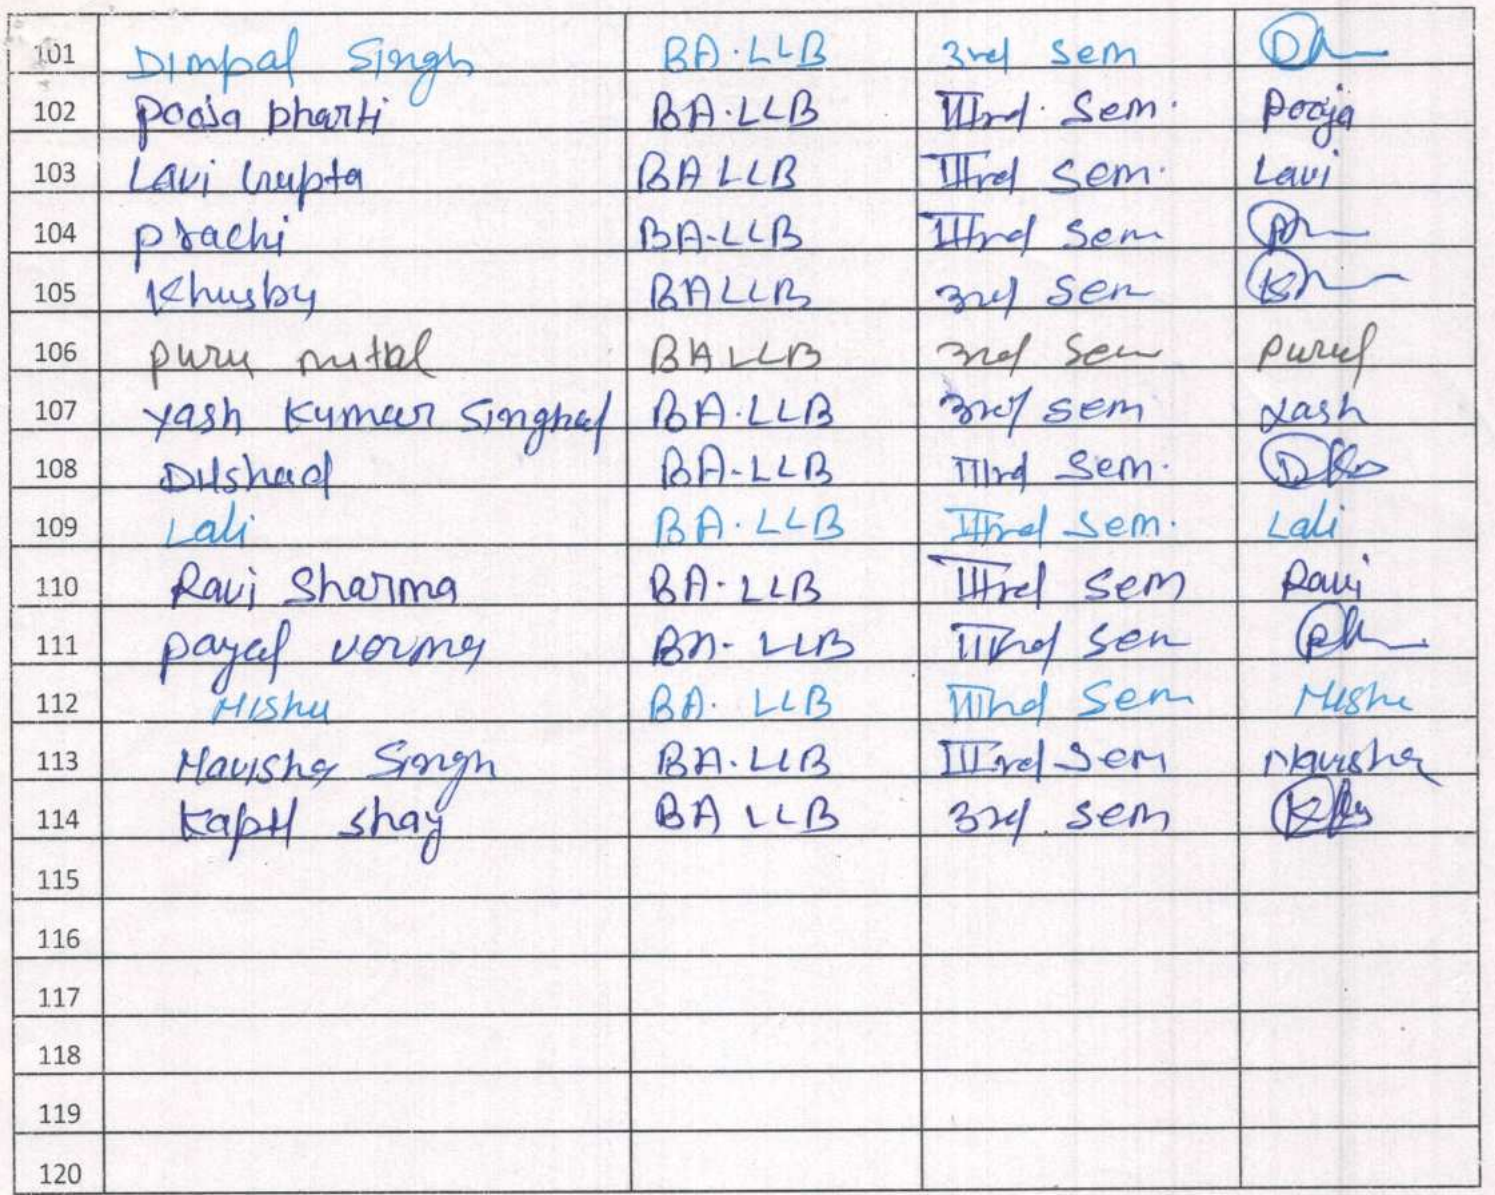 101 Dimpal Singh BA.LLB 3rd Sem
102 Pooja bharti BA.LLB IIIrd. Sem. Pooja
103 Lavi Gupta BALLB IIIrd Sem. Lavi
104 Prachi BA-LLB IIIrd Sem
105 Khusby BALLB 3rd Sem
106 Puru mittal BALLB 3rd Sem
107 Yash Kumar Singhal BA.LLB 3rd sem Yash
108 Dilshad BA-LLB IIIrd Sem.
109 Lali BA.LLB IIIrd Sem. Lali
110 Ravi Sharma BA.LLB IIIrd Sem Ravi
111 Payal verma BA-LLB IIIrd Sem
112 BA. LLB IIIrd Sem
113 Singh BA.LLB IIIrd Sem
114 BA LLB 3rd Sem
115
116
117
118
119
120